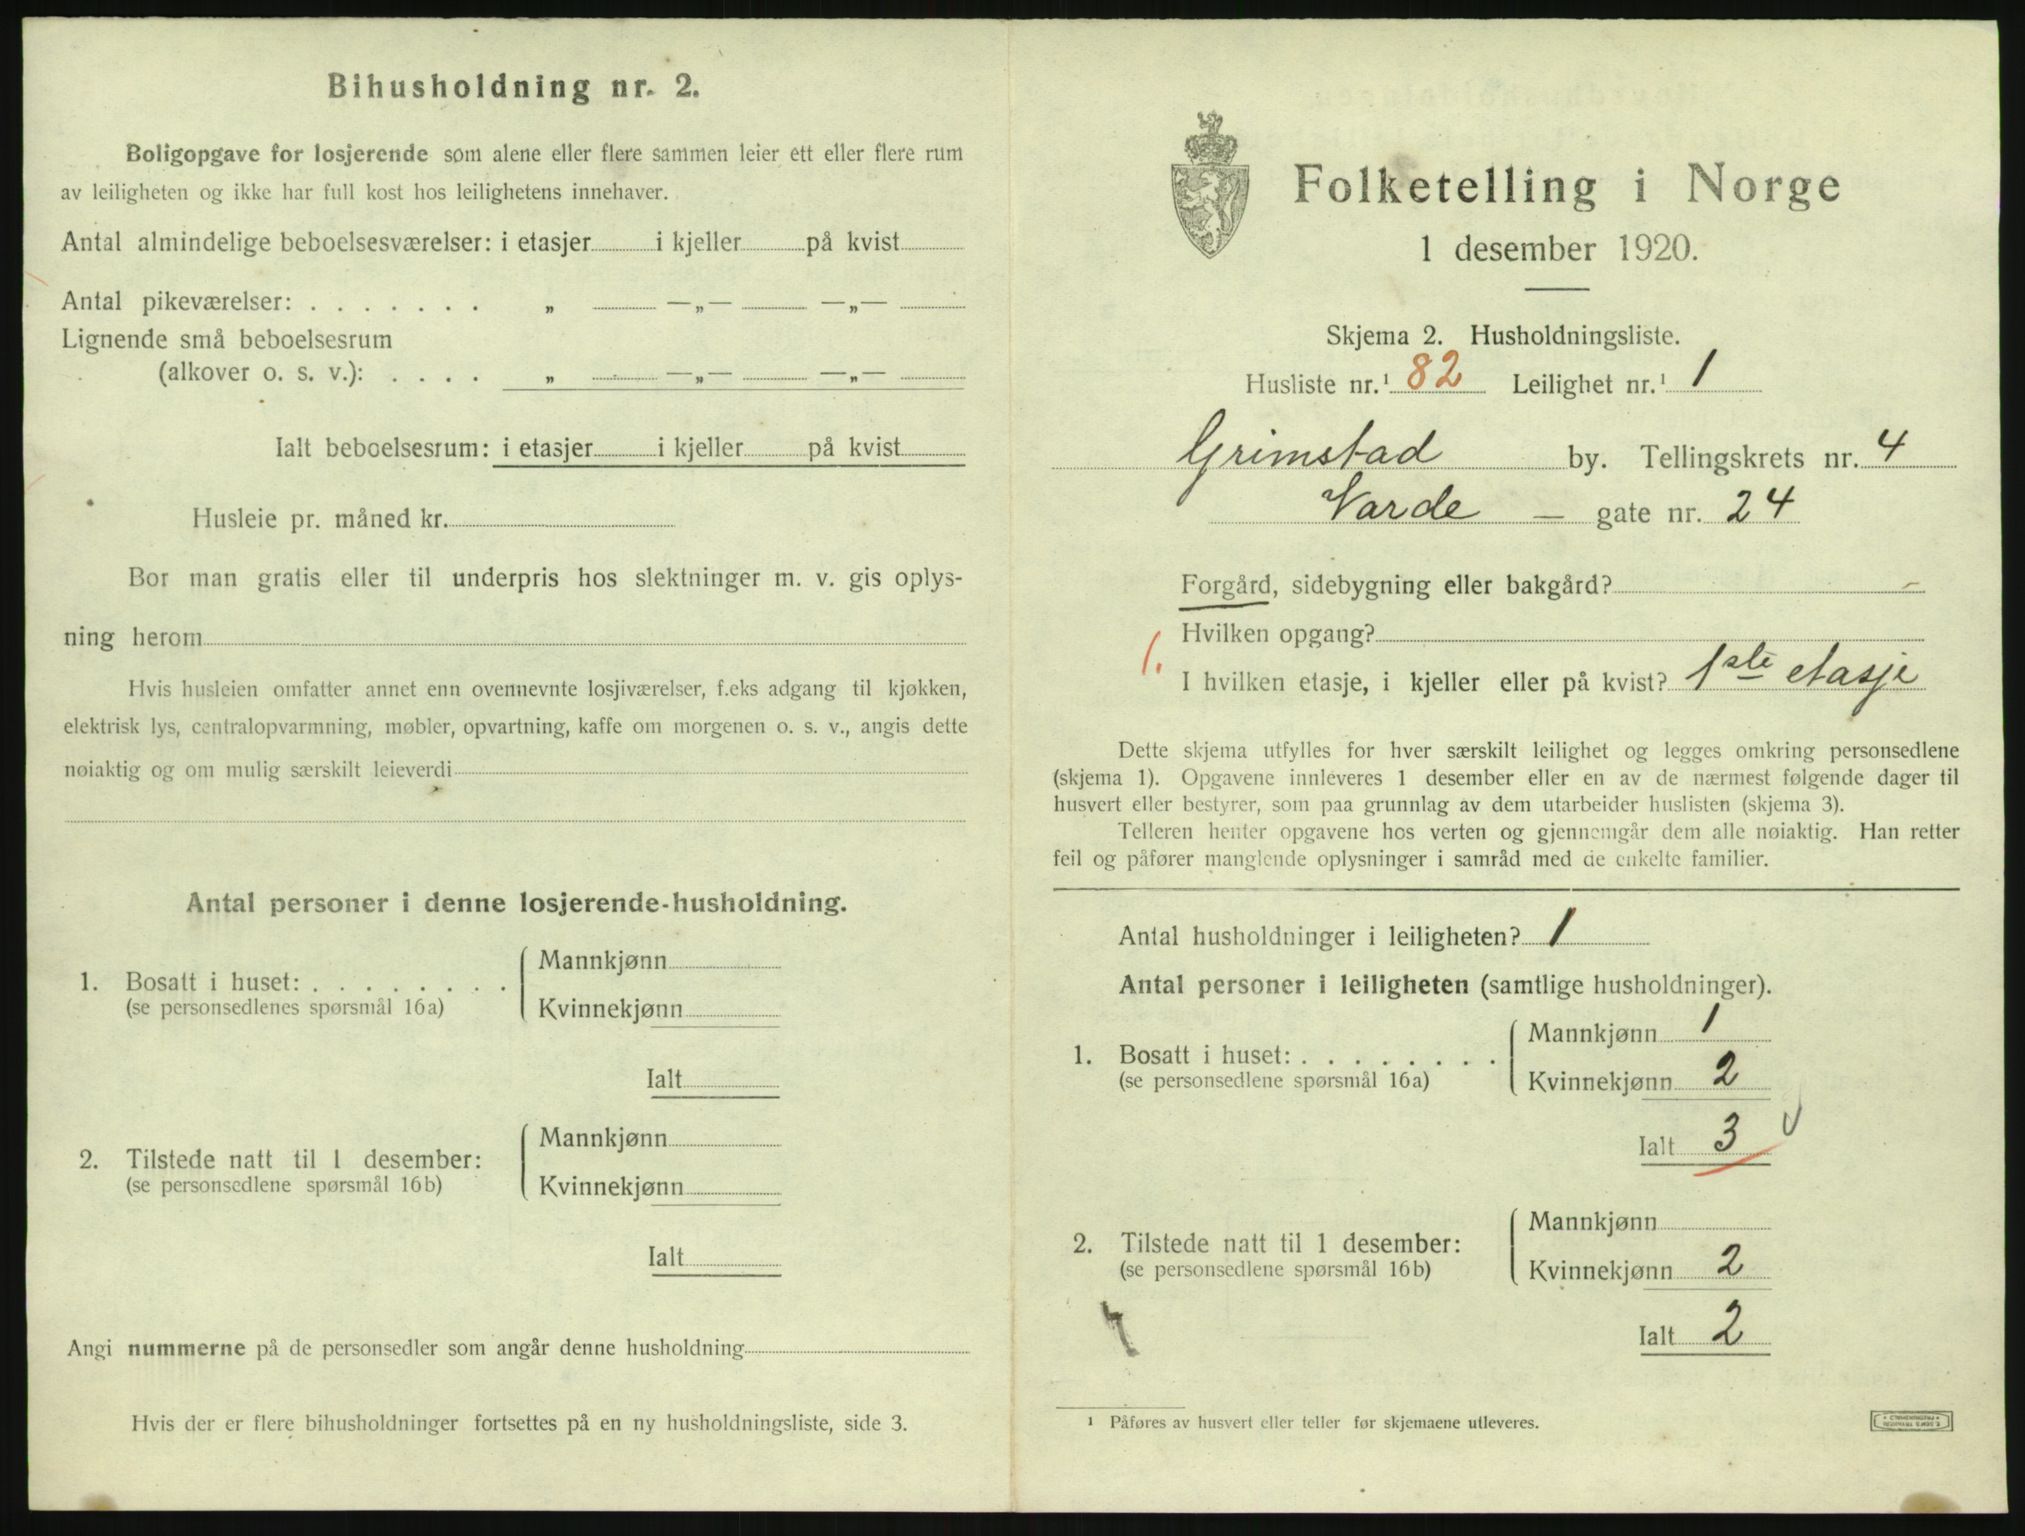 Bihusholdning nr. 2.
Boligopgave for losjerende som alene eller flere sammen leier ett eller flere rum
av leiligheten og ikke har full kost hos leilighetens innehaver.
Antal almindelige beboelsesværelser: i etasjer i kjeller på kvist
Antal pikeværelser: . . . . . . . „ —„— —„—
Lignende små beboelsesrum
(alkover o. s. v.): . . . . „ —„— —„—
Ialt beboelsesrum: i etasjer i kjeller på kvist
Husleie pr. måned kr.
Bor man gratis eller til underpris hos slektninger m. v. gis oplys-
ning herom
Hvis husleien omfatter annet enn ovennevnte losjiværelser, f.eks adgang til kjøkken,
elektrisk lys, centralopvarmning, møbler, opvartning, kaffe om morgenen o. s. v., angis dette
nøiaktig og om mulig særskilt leieverdi
Antal personer i denne losjerende-husholdning.
1. Bosatt i huset: . . . . . . . . Mannkjønn
(se personsedlenes spørsmål 16a) Kvinnekjønn
Ialt
2. Tilstede natt til 1 desember: Mannkjønn
(se personsedlene spørsmål 16b) Kvinnekjønn
Ialt
Angi nummerne på de personsedler som angår denne husholdning
Hvis der er flere bihusholdninger fortsettes på en ny husholdningsliste, side 3.
Folketelling i Norge
1 desember 1920.
Skjema 2. Husholdningsliste.
Husliste nr.¹ 82 Leilighet nr.¹ 1
Grimstad by. Tellingskrets nr. 4
Varde — gate nr. 24
Forgård, sidebygning eller bakgård? –
Hvilken opgang?
1.
I hvilken etasje, i kjeller eller på kvist? 1ste etasje
Dette skjema utfylles for hver særskilt leilighet og legges omkring personsedlene
(skjema 1). Opgavene innleveres 1 desember eller en av de nærmest følgende dager til
husvert eller bestyrer, som paa grunnlag av dem utarbeider huslisten (skjema 3).
Telleren henter opgavene hos verten og gjennemgår dem alle nøiaktig. Han retter
feil og påfører manglende oplysninger i samråd med de enkelte familier.
Antal husholdninger i leiligheten? 1
Antal personer i leiligheten (samtlige husholdninger).
1. Bosatt i huset: . . . . . . . . Mannkjønn 1
(se personsedlene spørsmål 16a) Kvinnekjønn 2
Ialt 3
2. Tilstede natt til 1 desember: Mannkjønn
(se personsedlene spørsmål 16b) Kvinnekjønn 2
Ialt 2
¹ Påføres av husvert eller teller før skjemaene utleveres.